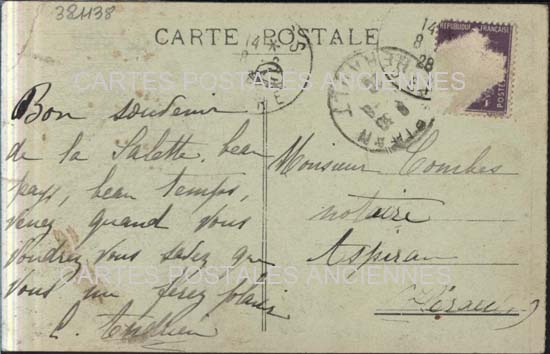 381138
CARTE POSTALE
14
8
28
REPUBLIQUE FRANÇAISE
POSTES
CARTES POSTALES ANCIENNES
Bon souvenir
de la Salette, beau
pays, beau temps,
venez quand vous
voudrez, vous savez que
vous me ferez plaisir
Monsieur Combes
notaire
Aspiran
(Hérault)
CARTES POSTALES ANCIENNES